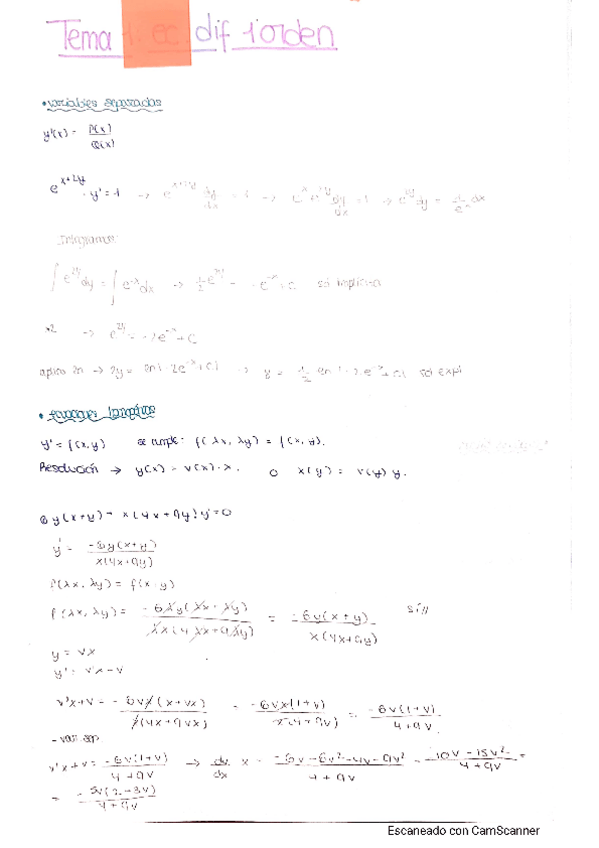 Tema 1: ec. dif 1 orden
• variables separadas
y'(x) = P(x) / Q(x)
e^{x+2y} · y' = 1 → e^{x+2y} dy/dx = 1 → e^x e^{2y} dy/dx = 1 → e^{2y} dy = 1/e^x dx
Integramos:
∫ e^{2y} dy = ∫ e^{-x} dx → 1/2 e^{2y} = -e^{-x} + C sol implícita
·2 → e^{2y} = -2e^{-x} + C
aplico ln → 2y = ln(-2e^{-x}+C) → y = 1/2 ln(-2e^{-x}+C) sol expl
y' = f(x,y) se cumple: f(λx, λy) = f(x,y).
Resolución → y(x) = v(x)·x. o x(y) = v(y) y.
6y(x+y) + x(4x+9y)y' = 0
y' = -6y(x+y) / x(4x+9y)
f(λx, λy) = f(x·y)
f(λx, λy) = -6λy(λx+λy) / λx(4λx+9λy) = -6y(x+y) / x(4x+9y) sí//
y = vx
y' = v'x+v
v'x+v = -6vx(x+vx) / x(4x+9vx) = -6vx(1+v) / x(4+9v) = -6v(1+v) / 4+9v
- var. sep
v'x+v = -6v(1+v) / 4+9v → dv/dx x = -6v-6v²-4v-9v² / 4+9v = -10v-15v² / 4+9v =
= -5v(2+3v) / 4+9v
Escaneado con CamScanner